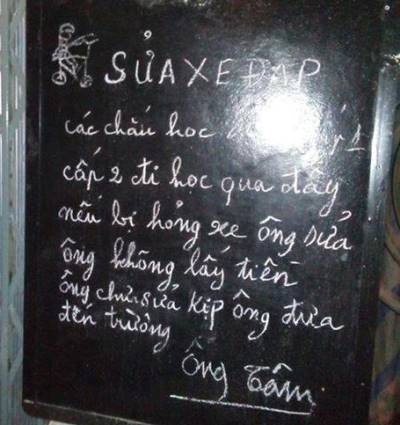 SỬA XE ĐẠP
các cháu học
cấp 2 đi học qua đây
nếu bị hỏng xe ông sửa
ông không lấy tiền
ông chưa sửa kịp ông đưa
đến trường
Ông Tâm